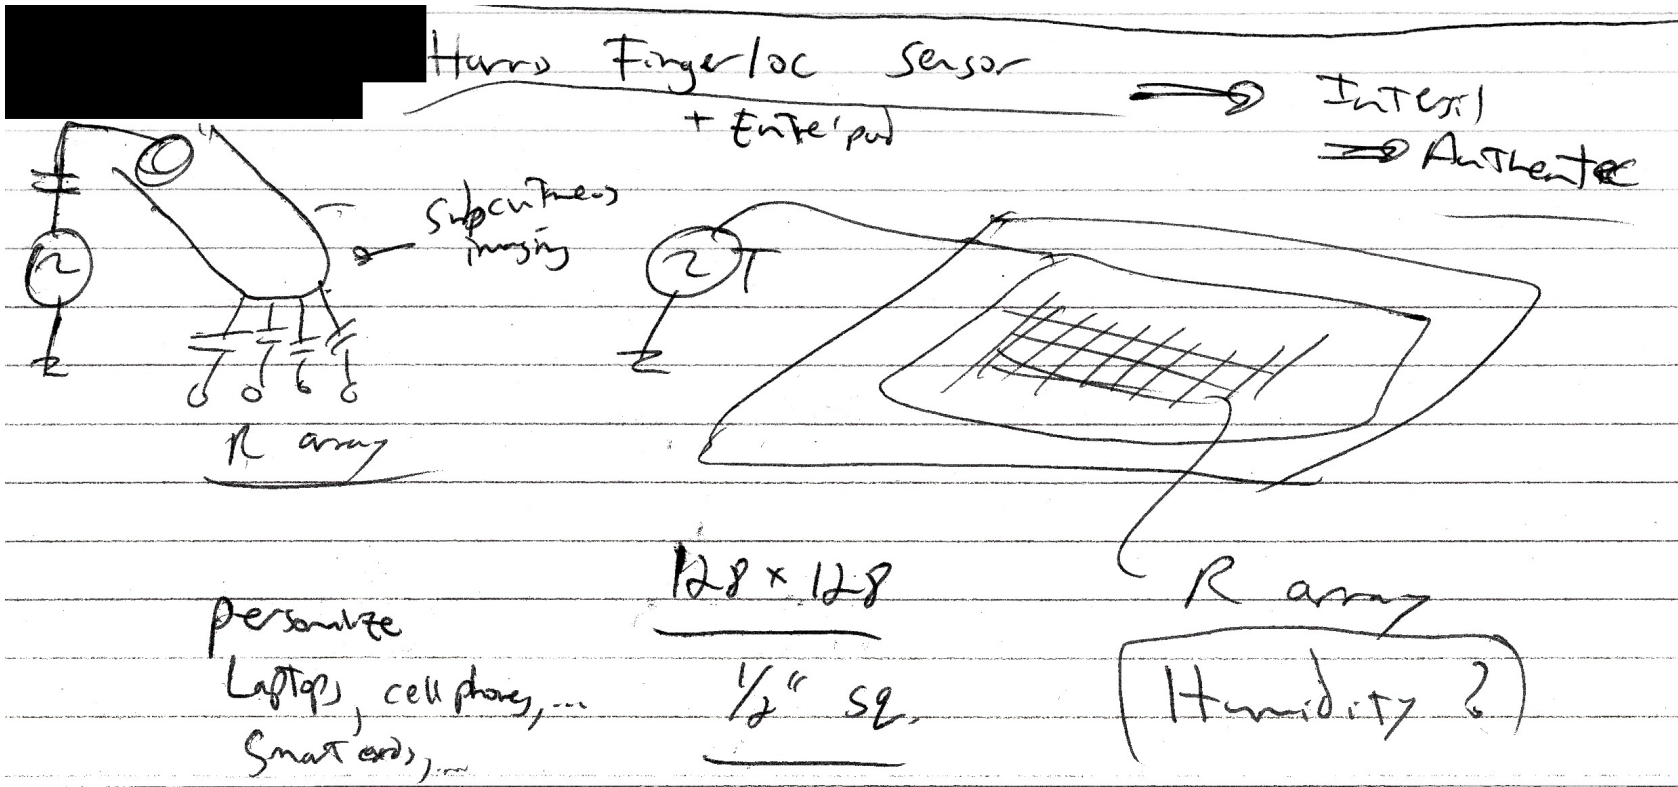 Harris Fingerloc sensor
+ Entre'pad
Intersil
Authentec
Subcutaneous
imaging
T
R array
128 x 128
R array
personalize
Laptops, cell phones, ...
1/2" sq.
Humidity ?
Smart cards, ...